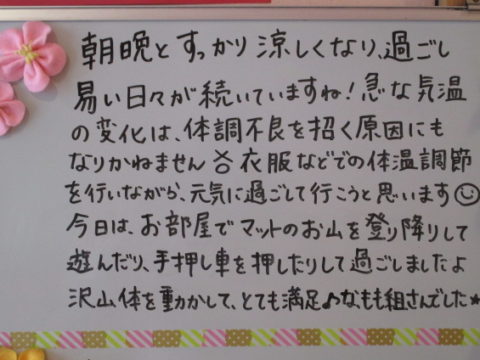 朝晩とすっかり涼しくなり、過ごし
易い日々が続いていますね!急な気温
の変化は、体調不良を招く原因にも
なりかねません 衣服などでの体温調節
を行いながら、元気に過ごして行こうと思います☺
今日は、お部屋でマットのお山を登り降りして
遊んだり、手押し車を押したりして過ごしましたよ
沢山体を動かして、とても満足♪なもも組さんでした★